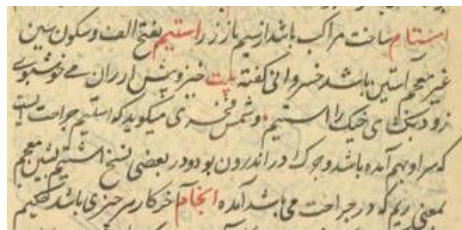 استام ساخت مراکب باشد از سیم یا زر استیم بفتح الف و سکون سین
غیر معجم آستین باشد خسروانی گفته بیت خیز و پیش آر زان می خوشبوی
زود بگشای خیک را استیم و شمس فخری میگوید که استیم جراحت است
که سر او بهم آمده باشد و چرک در اندرون بود و در بعضی نسخ اشتیم بشین معجم
بمعنی ریم که در جراحت می باشد آمده انجام آخر کار هر چیزی باشد حکیم